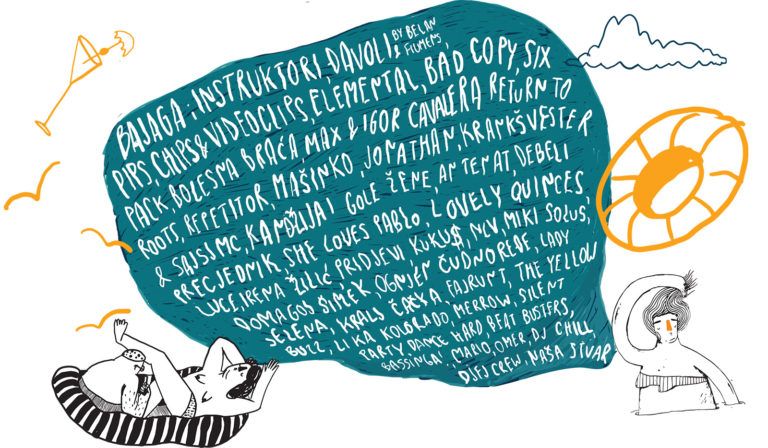 BAJAGA & INSTRUKTORI, ĐAVOLI, BY BELAN & FIUMENS
PIPS CHIPS & VIDEOCLIPS, ELEMENTAL, BAD COPY, SIX
PACK BOLESNA BRAĆA MAX & IGOR CAVALERA RETURN TO
ROOTS, REPETITOR, MAŠINKO, JONATHAN, KRANKŠVESTER
& SAJSI MC, KANDŽIJA I GOLE ŽENE, ANTENAT, DEBELI
PRECJEDNIK, SHE LOVES PABLO, LOVELY QUINCES,
LUCE IRENA ŽILIĆ, PRIDJEVI, KUKU$, NLV, MIKI SOLUS,
DOMAGOJ ŠIMEK, OGNJEN ČUDNOREĐE, LADY
SELENA, KRALJ ČAČKA, FAJRUNT, THE YELLOW
BUZZ, LIKA KOLORADO, MERROW, SILENT
PARTY DANCE HARD BEAT BUSTERS,
BASSINGA', MARIO, OMER, DJ CHILL
DJEJ CREW, NAŠA STVAR